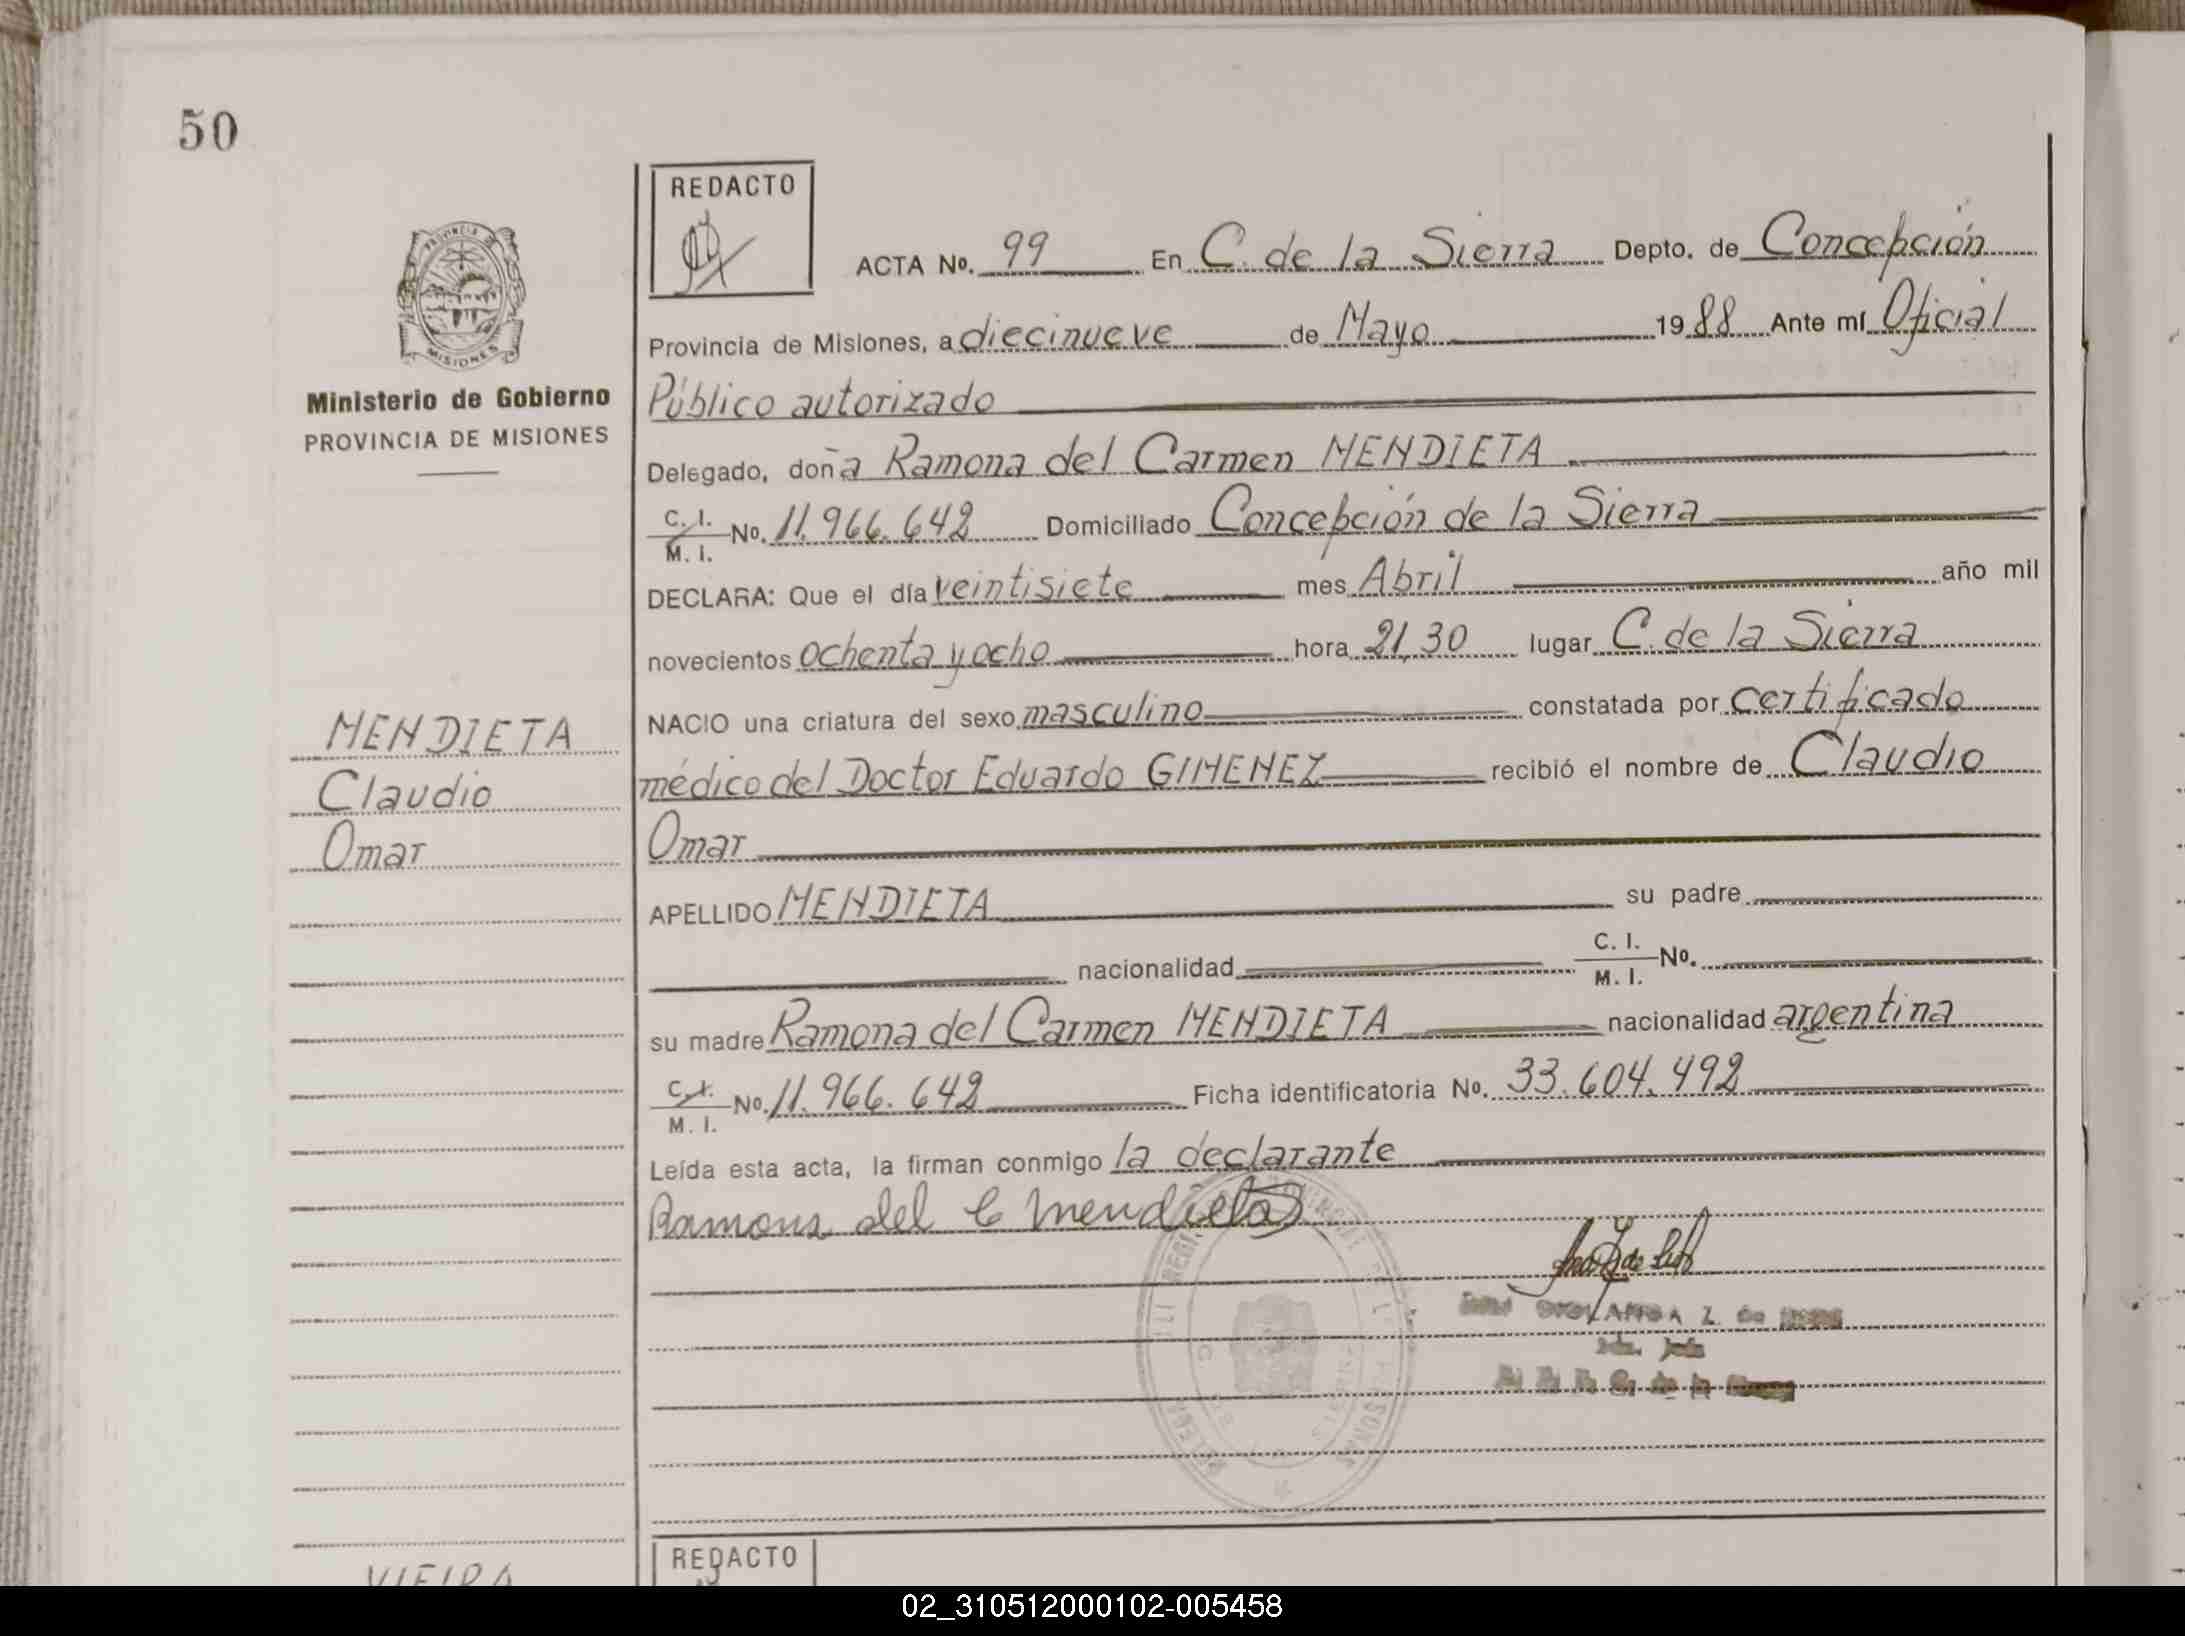 50
REDACTO
ACTA No. 99 En C. de la Sierra Depto. de Concepción
PROVINCIA DE
MISIONES
Provincia de Misiones, a diecinueve de Mayo 1988 Ante mí Oficial
Ministerio de Gobierno
PROVINCIA DE MISIONES
Público autorizado
Delegado, doña Ramona del Carmen MENDIETA
C. I.
M. I. No. 11.966.642 Domiciliado Concepción de la Sierra
DECLARA: Que el día veintisiete mes Abril año mil
novecientos ochenta y ocho hora 21,30 lugar C. de la Sierra
MENDIETA
Claudio
Omar
NACIO una criatura del sexo masculino constatada por certificado
médico del Doctor Eduardo GIMENEZ recibió el nombre de Claudio
Omar
APELLIDO MENDIETA su padre
nacionalidad C. I.
M. I. No.
su madre Ramona del Carmen MENDIETA nacionalidad argentina
C. I.
M. I. No. 11.966.642 Ficha identificatoria No. 33.604.492
Leída esta acta, la firman conmigo la declarante
Ramona del C Mendieta
Z. de
REDACTO
VIEIRA
02_310512000102-005458